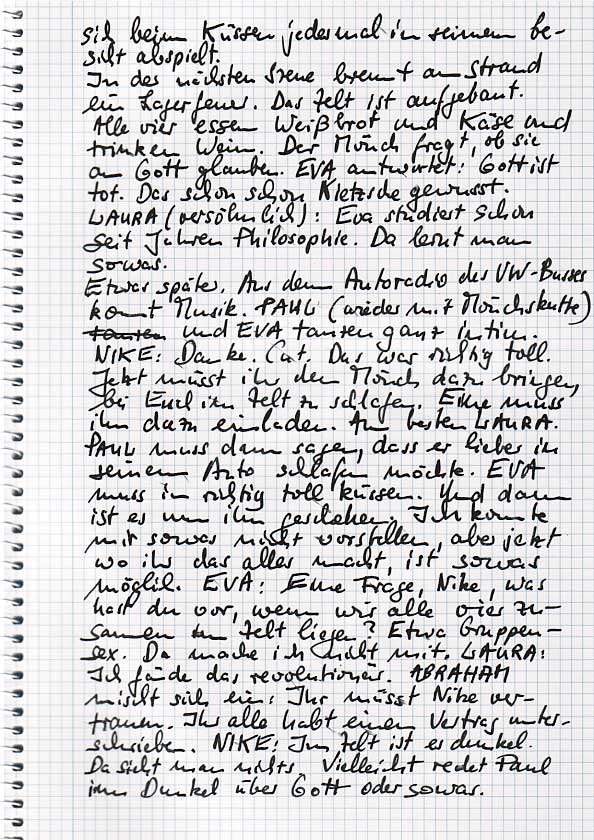 sich beim Küssen jedesmal in seinem be-
sicht abspielt.
In der nächsten Szene brennt am Strand
ein Lagerfeuer. Das Zelt ist aufgebaut.
Alle vier essen Weißbrot und Käse und
trinken Wein. Der Mönch fragt, ob sie
an Gott glauben. EVA antwortet: Gott ist
tot. Das schon schon Nietzsche gewusst.
LAURA (versöhnlich): Eva studiert schon
seit Jahren Philosophie. Da lernt man
sowas.
Etwas später. Aus dem Autoradio des VW-Busses
kommt Musik. PAUL (wieder mit Mönchskutte)
tanzen und EVA tanzen ganz intim.
NIKE: Danke. Cut. Das war richtig toll.
Jetzt müsst ihr den Mönch dazu bringen,
bei Euch im Zelt zu schlafen. Eine muss
ihn dazu einladen. Am besten LAURA.
PAUL muss dann sagen, dass er lieber in
seinem Auto schlafen möchte. EVA
muss in richtig toll küssen. Und dann
ist es um ihn geschehen. Ich konnte
mir sowas nicht vorstellen, aber jetzt
wo ihr das alles macht, ist sowas
möglich. EVA: Eine Frage, Nike, was
hast du vor, wenn wir alle vier zu-
sammen im Zelt liegen? Etwa Gruppen-
sex. Da mache ich nicht mit. LAURA:
Ich fände das revolutionär. ABRAHAM
mischt sich ein: Ihr müsst Nike ver-
trauen. Ihr alle habt einen Vertrag unter-
schrieben. NIKE: Im Zelt ist es dunkel.
Da sieht man nichts. Vielleicht redet Paul
im Dunkel über Gott oder sowas.